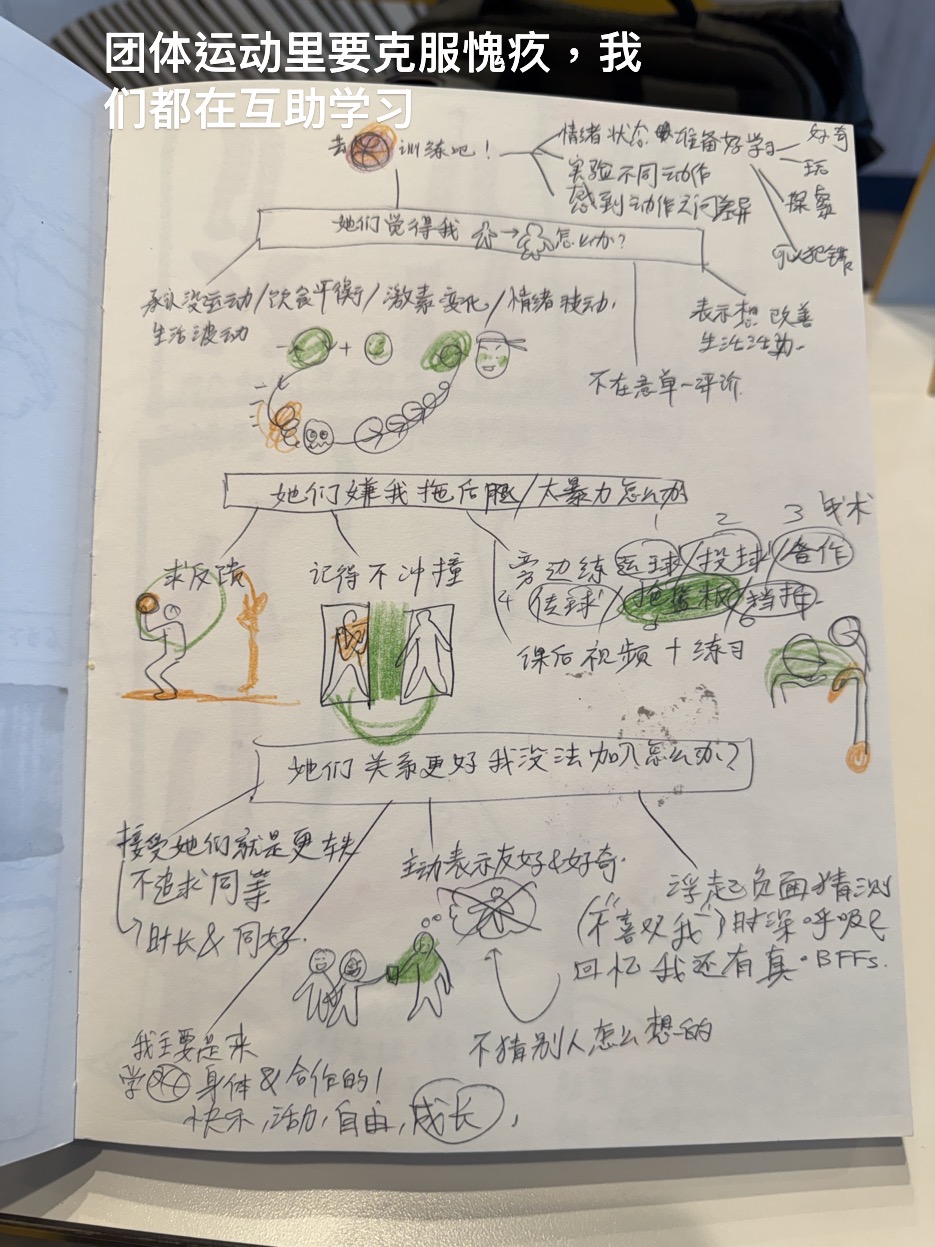 团体运动里要克服愧疚，我
们都在互助学习
去 训练吧！
情绪状态 准备好学习
好奇
玩
探索
可以犯错
实验不同动作
感到动作之间差异
她们觉得我 → 怎么办？
承认没运动/饮食平衡/激素变化/情绪波动.
生活波动
- +
表示想改善
生活活动.
不在意单一评价.
她们嫌我拖后腿/太暴力怎么办
求反馈
记得不冲撞
1 2 3 战术
旁边练运球/投球/合作
4 传球/抢篮板/挡拆.
5 6
课后视频+练习
她们关系更好我没法加入怎么办？
接受她们就是更铁
不追求同等
时长&同好.
主动表示友好&好奇.
浮起负面猜测
(“不喜欢我”)时深呼吸&
回忆我还有真·BFFs.
不猜别人怎么想的
我主要是来
学 身体&合作的！
快乐,活力,自由,成长,